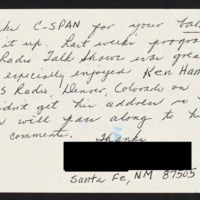 C-SPAN for your
it up. Last week's
Radio Talk Shows was
especially enjoyed Ken
Radio, Denver, Colorado on
get his address so
will pass along to
comments. Thanks
Santa Fe, NM 87505